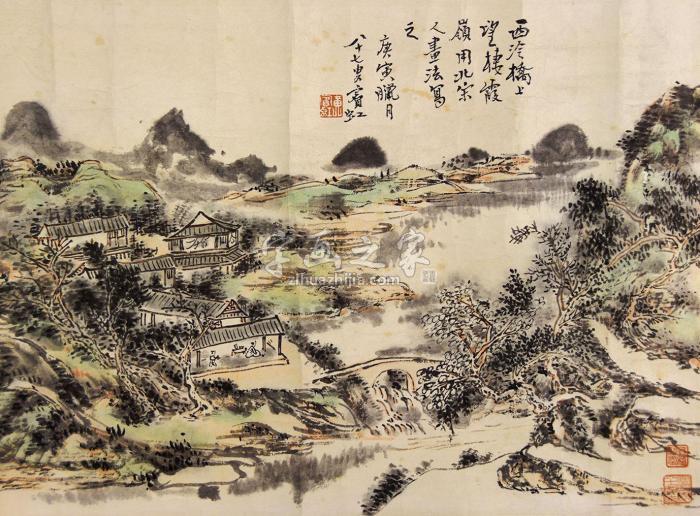 西泠橋上
望棲霞
嶺用北宋
人畫法寫
之
庚寅臘月
八十七叟賓虹
字画之家
zihuazhijia.com